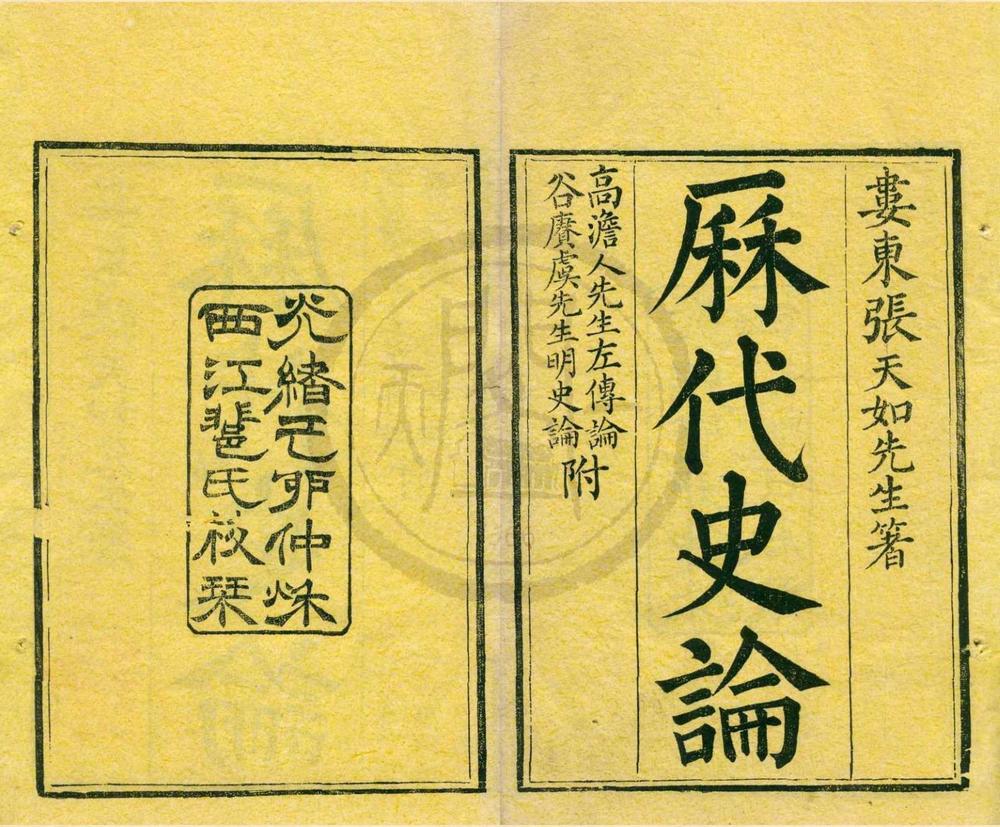 婁東張天如先生箸
厤代史論
高澹人先生左傳論
谷賡虞先生明史論
附
光緒己卯仲秌
西江裴氏校栞